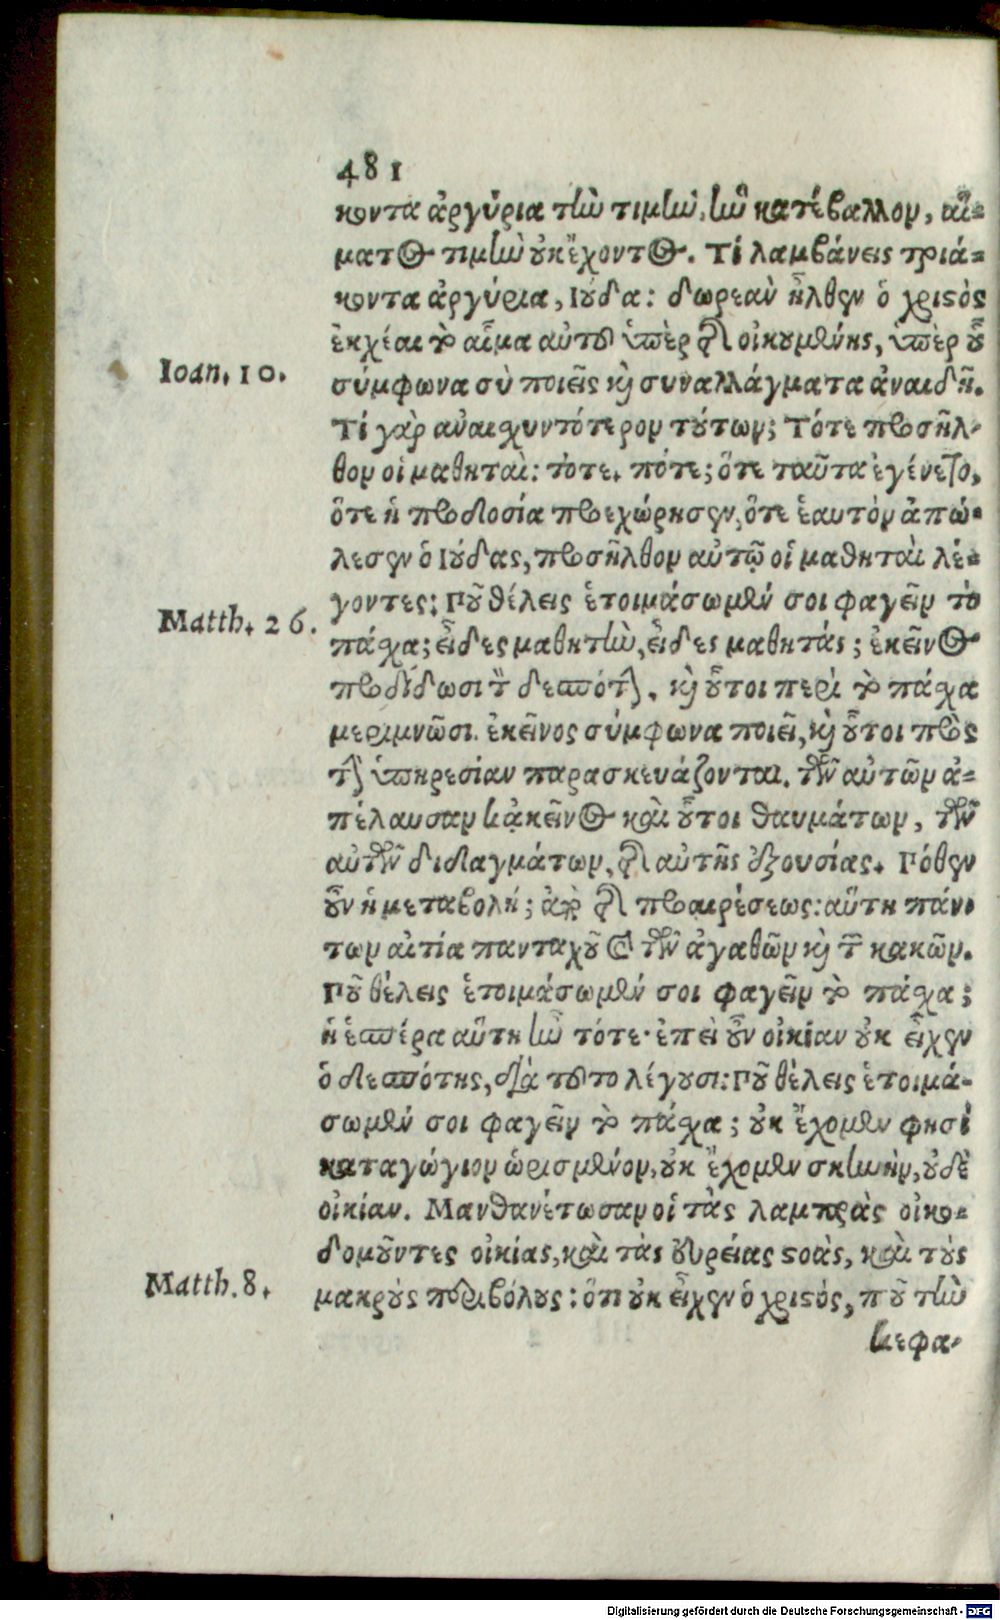 481
κοντα ἀργύρια τὴν τιμὴν, ἣν κατέβαλλον, αἵ-
ματος τιμὴν οὐκ ἔχοντος. Τί λαμβάνεις τριά-
κοντα ἀργύρια, Ἰούδα; δωρεὰν ἦλθεν ὁ χριστὸς
ἐκχέαι τὸ αἷμα αὐτοῦ ὑπὲρ τῆς οἰκουμένης, ὑπὲρ οὗ
Ioan. 10.
σύμφωνα σὺ ποιεῖς καὶ συναλλάγματα ἀναιδῆ.
Τί γὰρ ἀναισχυντότερον τούτων; Τότε προσῆλ-
θον οἱ μαθηταὶ: τότε. πότε; ὅτε ταῦτα ἐγένετο,
ὅτε ἡ προδοσία προεχώρησεν, ὅτε ἑαυτὸν ἀπώ-
λεσεν ὁ Ἰούδας, προσῆλθον αὐτῷ οἱ μαθηταὶ λέ-
γοντες: Ποῦ θέλεις ἑτοιμάσωμέν σοι φαγεῖν τὸ
Matth. 26.
πάσχα; εἶδες μαθητὴν, εἶδες μαθητάς; ἐκεῖνος
προδίδωσι τὸν δεσπότην, καὶ οὗτοι περὶ τὸ πάσχα
μεριμνῶσι. ἐκεῖνος σύμφωνα ποιεῖ, καὶ οὗτοι πρὸς
τὴν ὑπηρεσίαν παρασκευάζονται. τῶν αὐτῶν ἀ-
πέλαυσαν κἀκεῖνος καὶ οὗτοι θαυμάτων, τῶν
αὐτῶν διδαγμάτων, τῆς αὐτῆς ἐξουσίας. Πόθεν
οὖν ἡ μεταβολή; ἀπὸ τῆς προαιρέσεως: αὕτη πάν-
των αἰτία πανταχοῦ καὶ τῶν ἀγαθῶν καὶ τῶν κακῶν.
Ποῦ θέλεις ἑτοιμάσωμέν σοι φαγεῖν τὸ πάσχα;
ἡ ἑσπέρα αὕτη ἦν τότε· ἐπεὶ οὖν οἰκίαν οὐκ εἶχεν
ὁ δεσπότης, διὰ τοῦτο λέγουσι: Ποῦ θέλεις ἑτοιμά-
σωμέν σοι φαγεῖν τὸ πάσχα; οὐκ ἔχομεν φησὶ
καταγώγιον ὡρισμένον, οὐκ ἔχομεν σκηνὴν, οὐδὲ
οἰκίαν. Μανθανέτωσαν οἱ τὰς λαμπρὰς οἰκο-
δομοῦντες οἰκίας, καὶ τὰς εὐρείας στοὰς, καὶ τοὺς
Matth. 8.
μακροὺς περιβόλους: ὅτι οὐκ εἶχεν ὁ χριστός, ποῦ τὴν
κεφα-
Digitalisierung gefördert durch die Deutsche Forschungsgemeinschaft - DFG